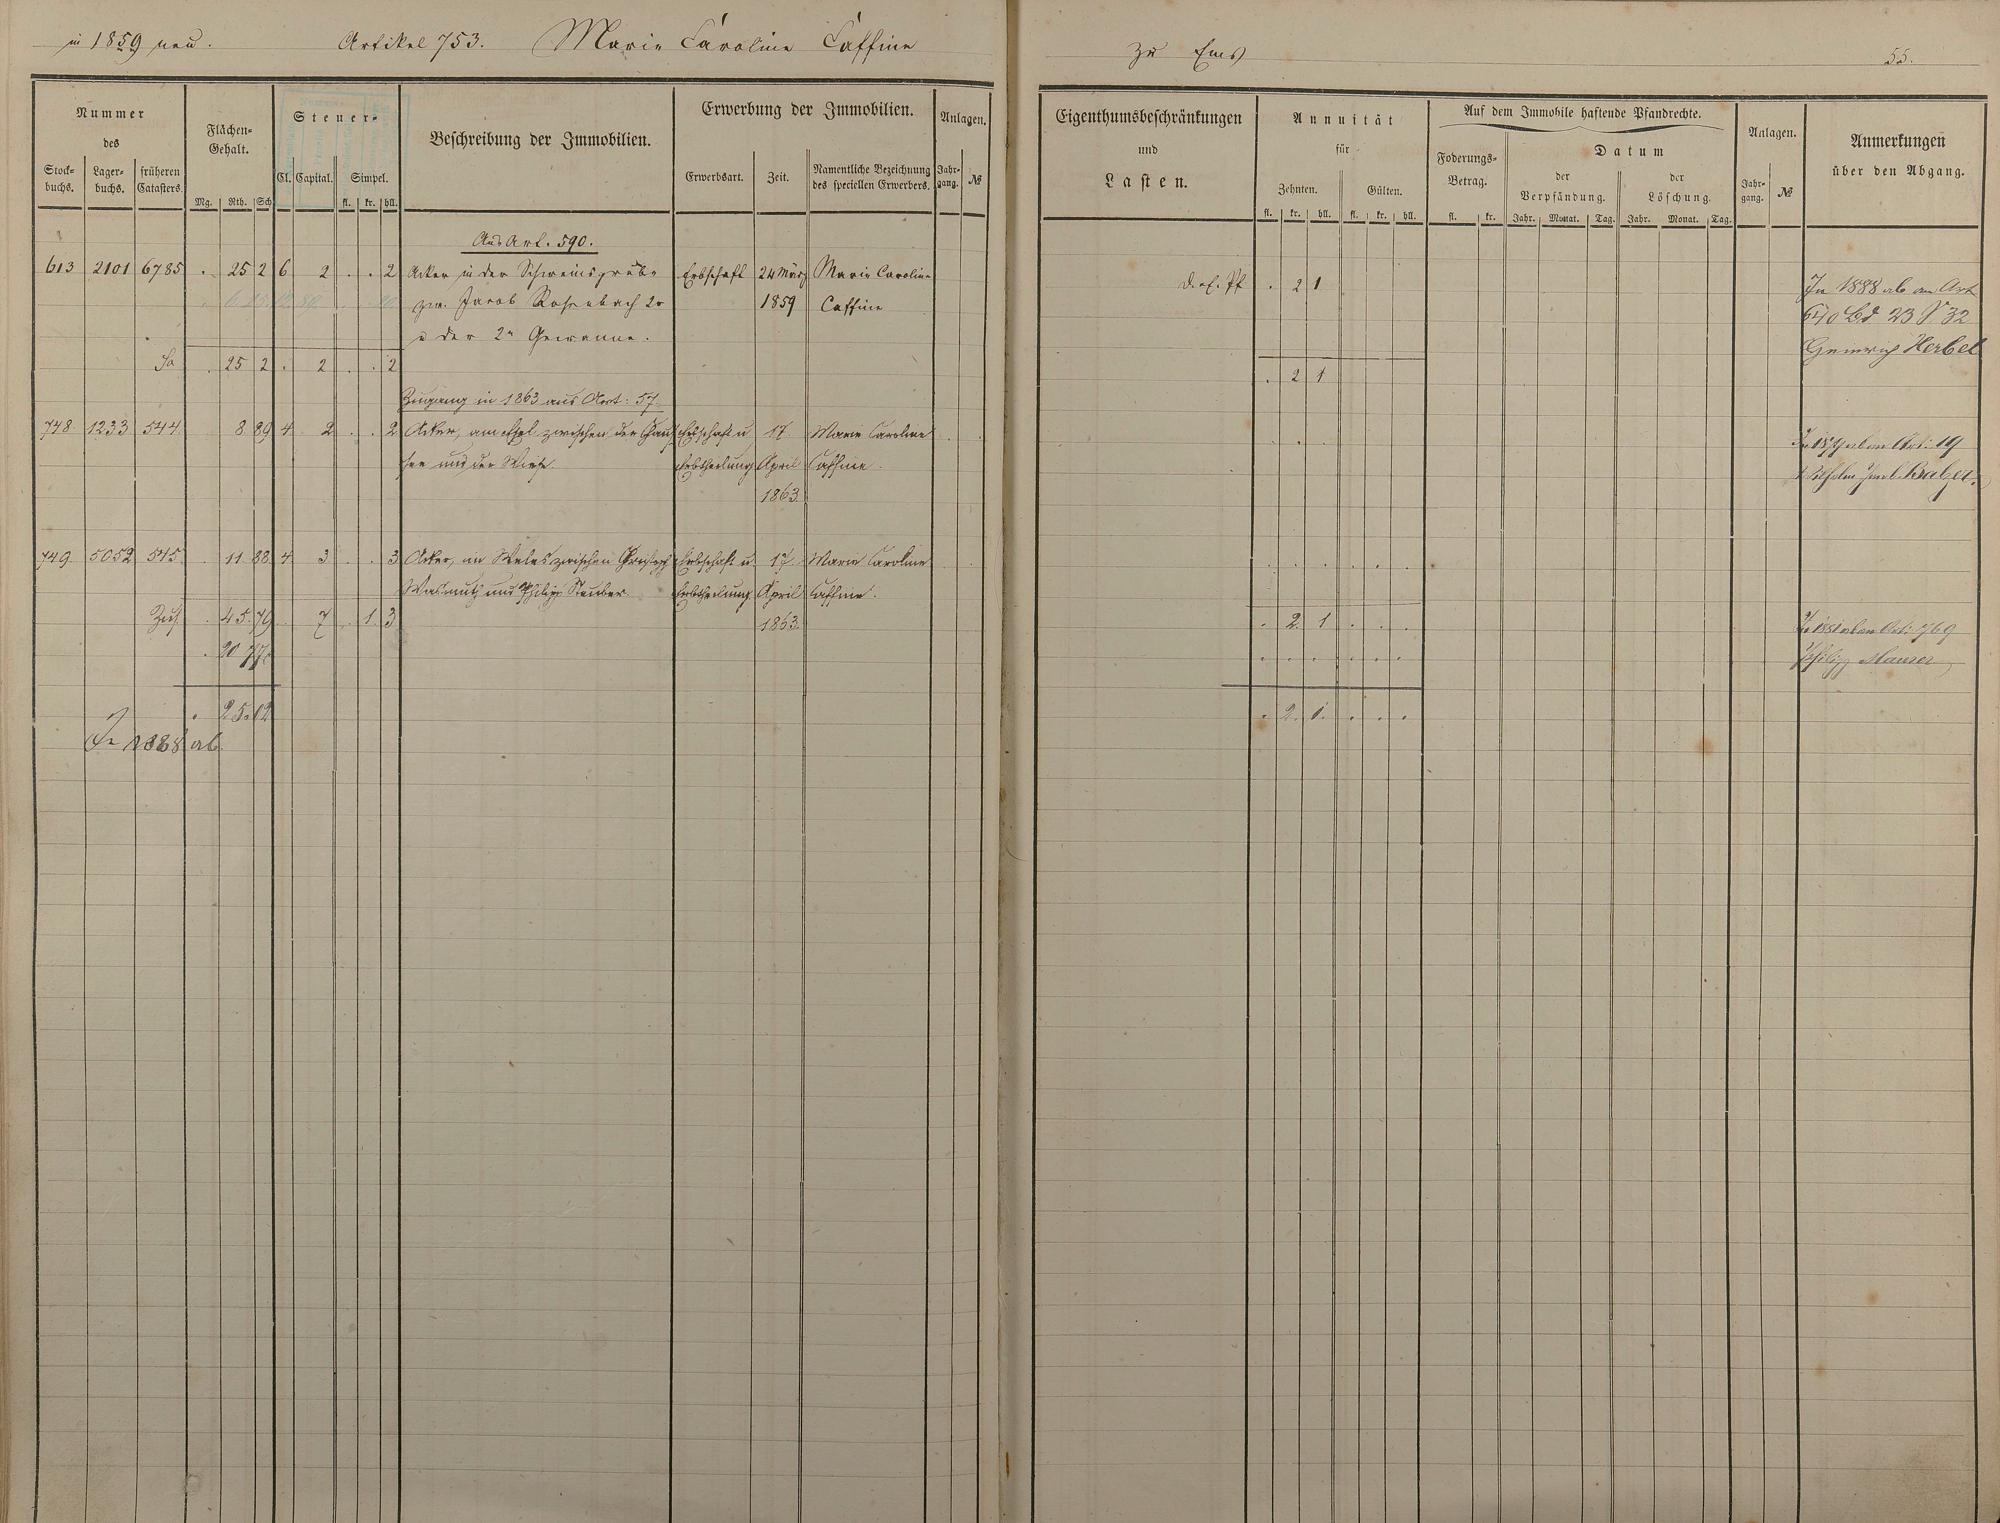 in 1859 neu. Artikel 753. Marie Caroline Caffine zu Ems 55.
Nummer
des
Stock-
buchs.
Lager-
buchs.
früheren
Catasters.
Flächen-
Gehalt.
Mg. Rth. Sch
Steuer-
Cl. Capital. Simpel.
fl. kr. hll.
Beschreibung der Immobilien.
Erwerbung der Immobilien.
Erwerbsart. Zeit.
Namentliche Bezeichnung
des speciellen Erwerbers.
Anlagen.
Jahr-
gang.
№
Eigenthumsbeschränkungen
und
Lasten.
Annuität
für
Zehnten. Gülten.
fl. kr. hll. fl. kr. hll.
Auf dem Immobile haftende Pfandrechte.
Foderungs-
Betrag.
fl. kr.
Datum
der
Verpfändung.
Jahr. Monat. Tag.
der
Löschung.
Jahr. Monat. Tag.
Anlagen.
Jahr-
gang.
№
Anmerkungen
über den Abgang.
Aus Art. 590.
613 2101 6785 . 25 2 6 2 . . 2 Acker in der Schweinsgrube Erbschaft 24 März Marie Caroline . 2 1 In 1888 ab an Art
zw. Jacob Rosenbach 2r 1859 Caffine 640 Bd 23 S 32
u der 2n Gewanne. Heinrich Herbel
Sa . 25 2 . 2 . . 2 . 2 1
Zugang in 1863 aus Art: 57
748. 1233 544 8 89 4 2 . . 2 Acker, am zwischen der Chaus Erbschaft u 17. Marie Caroline Art: 19
see und der Wiese. Erbtheilung April Caffine. Balzer.
1863.
749. 5052 545 . 11 88 4 3 . . 3 Acker, zwischen Christoph Erbschaft u 17. Marie Caroline
Wasmuth und Philipp Steuber Erbtheilung April Caffine.
Zus. . 45. 79 . 7 . 1. 3 1863. . 2. 1 . . . In 1881 ab an Art: 769
. 20 77 Philipp
. 25. 02 . 2. 1. . . .
In 1888 ab.